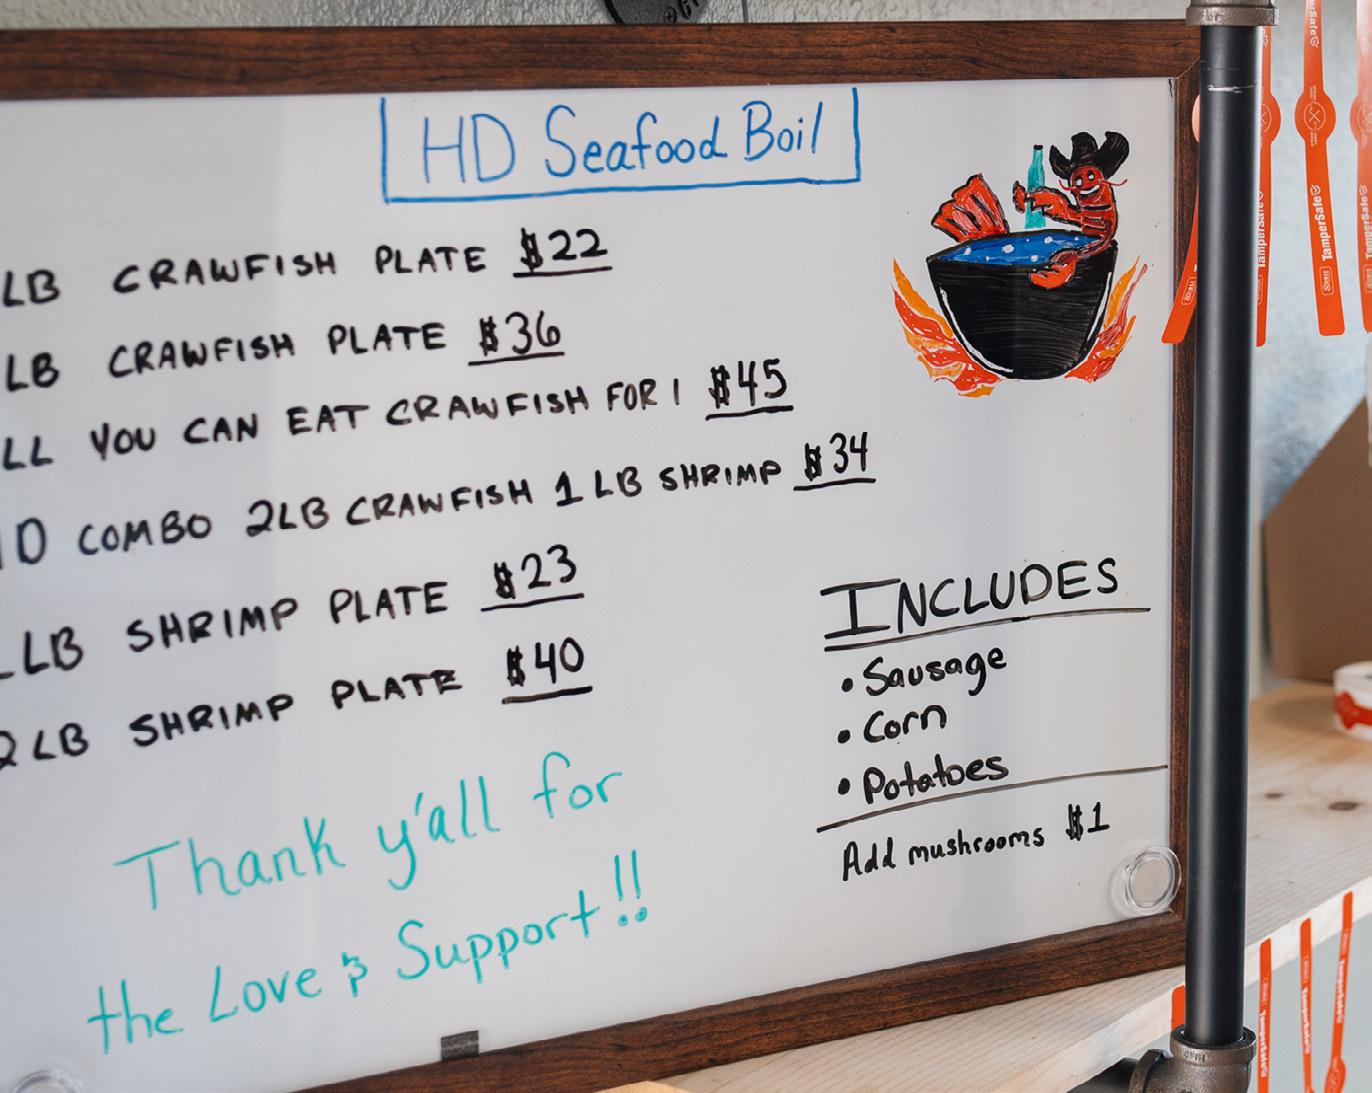 HD Seafood Boil
LB CRAWFISH PLATE $22
LB CRAWFISH PLATE $36
LL YOU CAN EAT CRAWFISH FOR 1 $45
D COMBO 2LB CRAWFISH 1 LB SHRIMP $34
LB SHRIMP PLATE $23
2LB SHRIMP PLATE $40
INCLUDES
• Sausage
• Corn
• Potatoes
Add mushrooms $1
Thank y'all for
the Love & Support!!
TamperSafe
TamperSafe